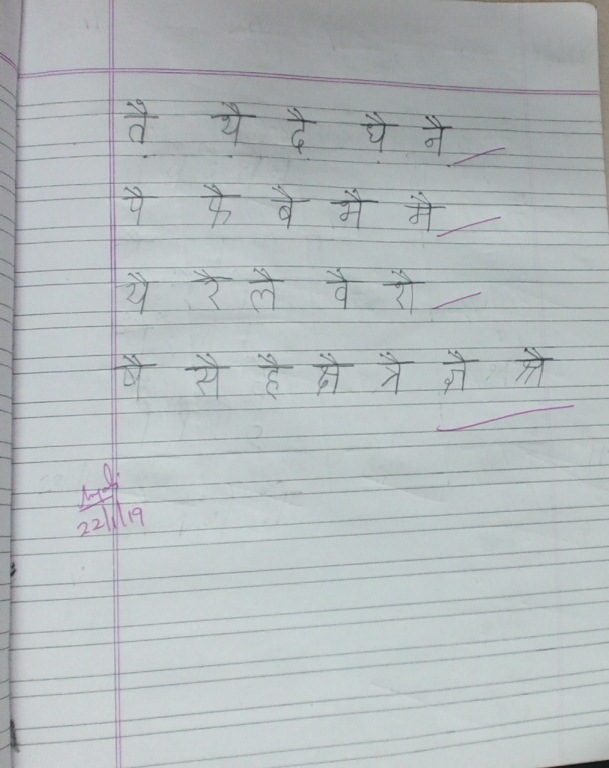 तै थै दै धै नै
पै फै बै भै मै
यै रै लै वै शै
षै सै है क्षै त्रै ज्ञै श्रै
22/1/19